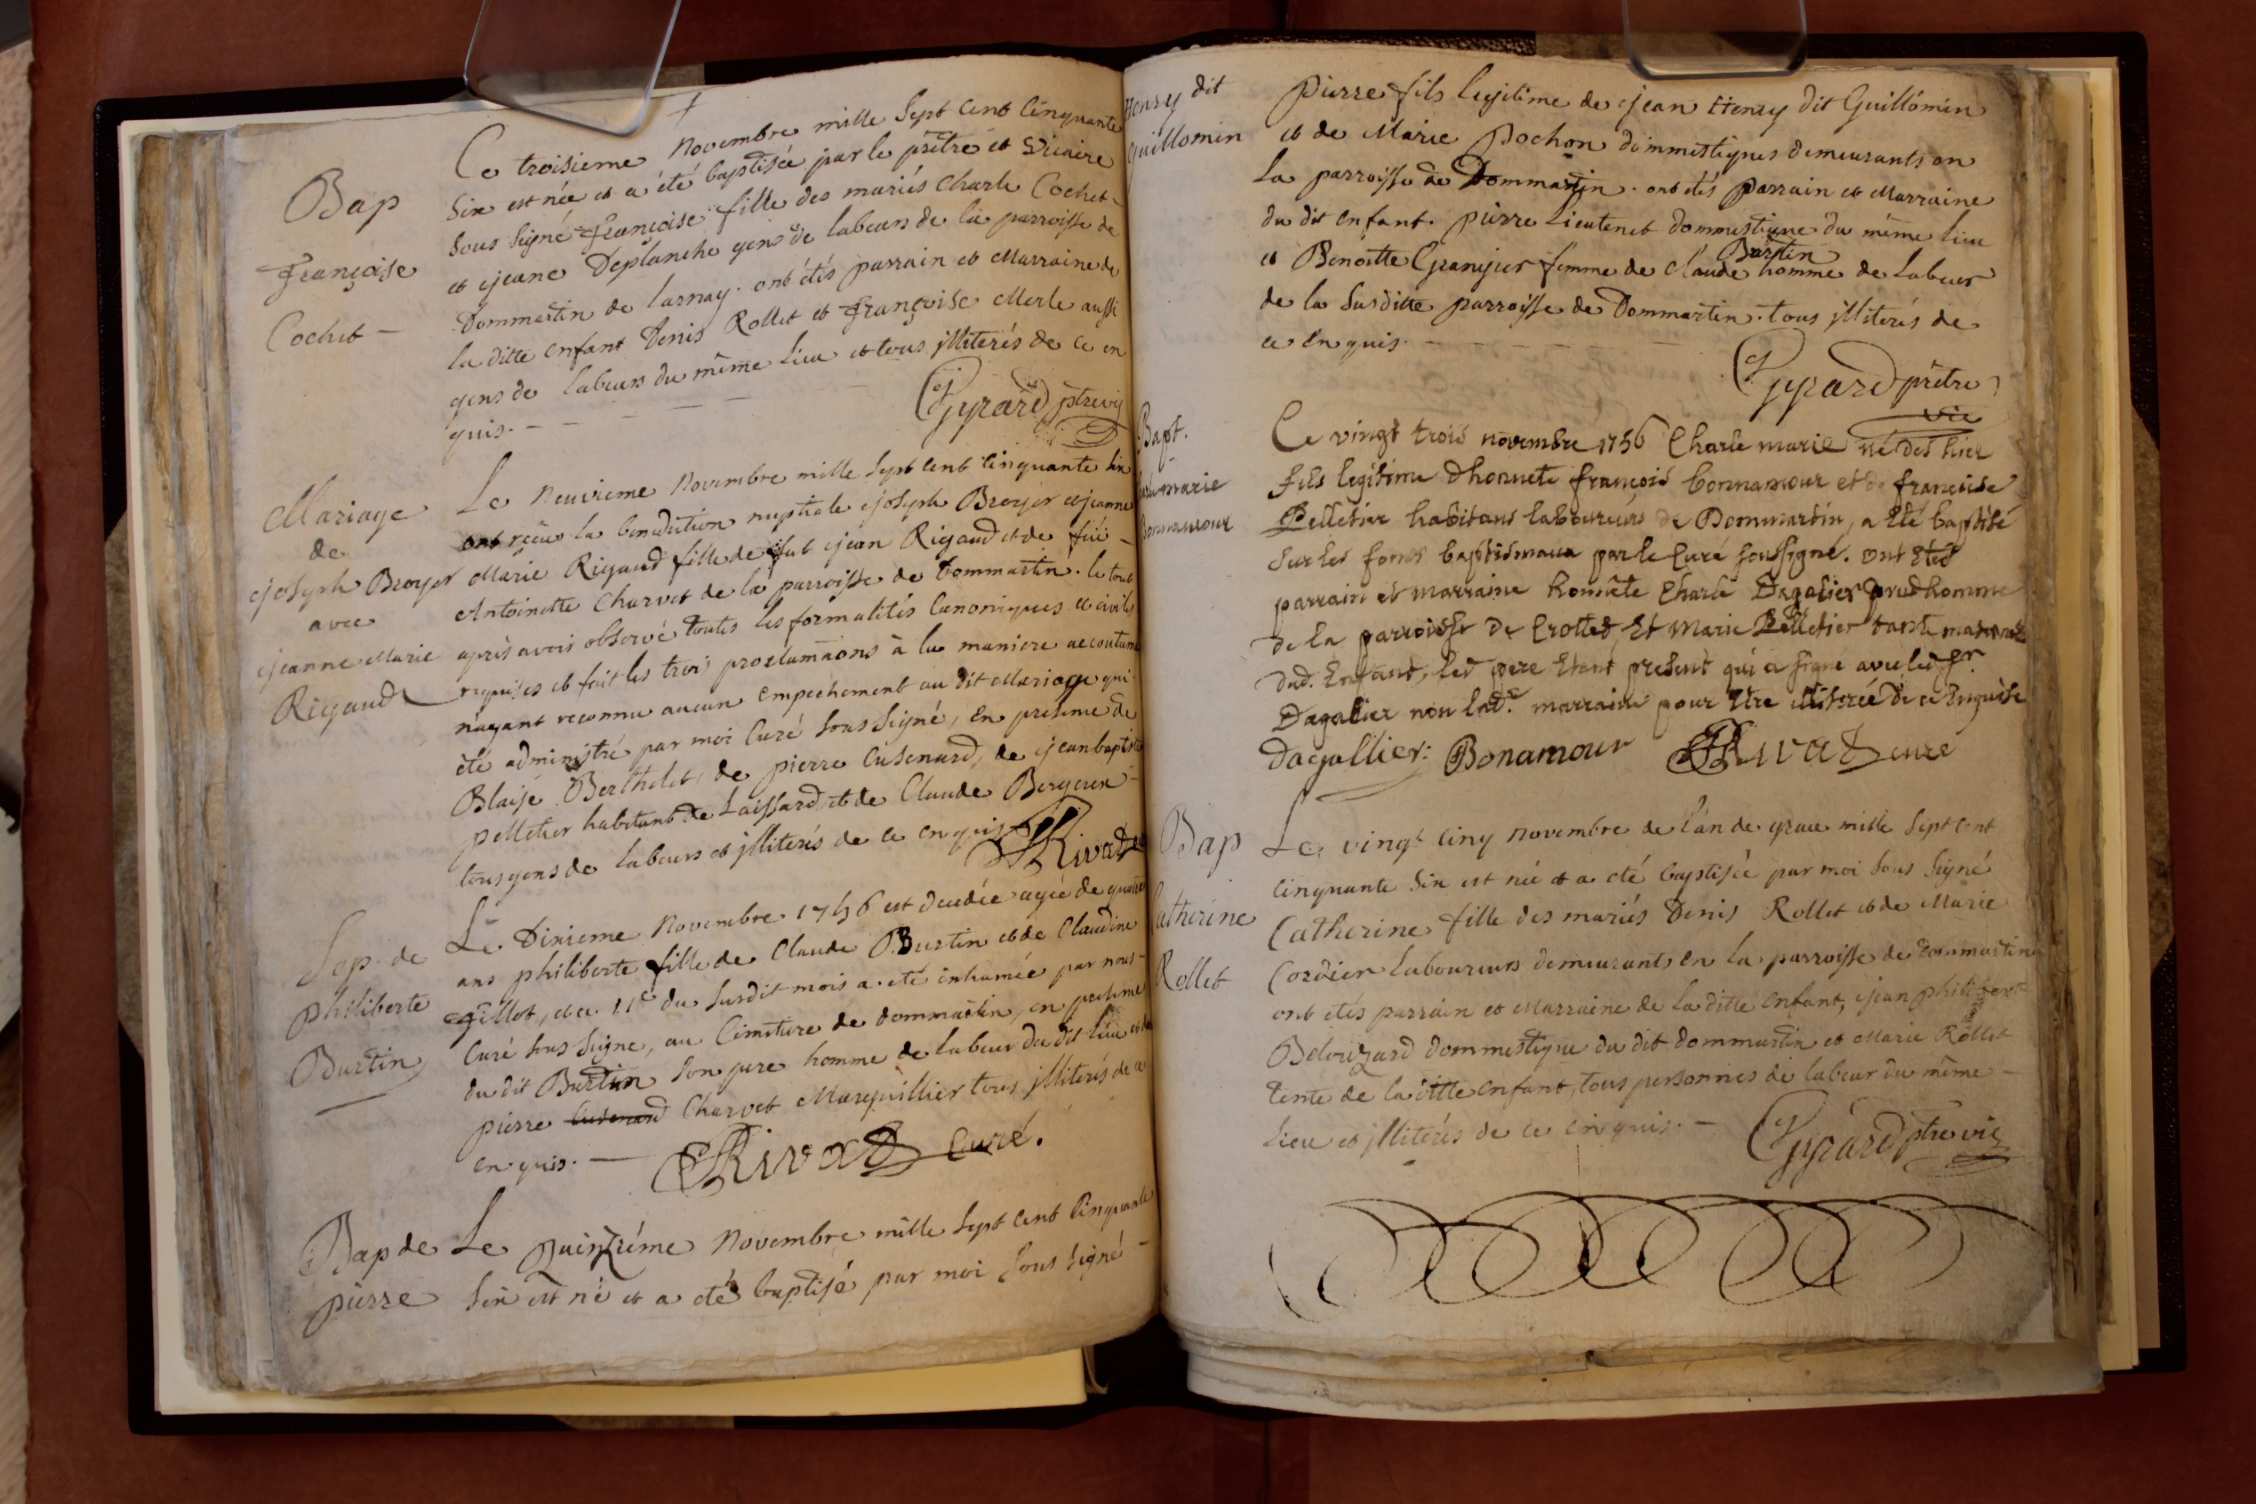 Bap
Françoise
Cochet
Ce troisieme novembre mille Sept Cent Cinquante
Six est née et a été baptisée par le prêtre et vicaire
sous signé Françoise fille des mariés Charle Cochet
et jeane Deplanche gens de labeurs de la parroisse de
Dommartin de larnay. ont étés parrain et Marraine de
la ditte enfant Denis Rollet et Françoise Merle aussi
gens de labeurs du même lieu et tous jlliterés de ce en
quis.
Gyrard ptre vic
Mariage
de
joseph Broyer
avec
jeanne Marie
Rigaud
Le neuvieme novembre mille Sept Cent Cinquante Six
ont reçus la benediction nuptiale joseph Broyer et jeanne
Marie Rigaud fille de fut jean Rigaud et de füe
Antoinette Charvet de la parroisse de Dommartin. le tout
après avoir observé toutes les formalités Canoniques et civiles
requises et fait les trois proclamãons à la maniere accoutumé
n'ayant reconnu aucun empechement au dit Mariage qui
été administré par moi Curé sous signé, En presence de
Blaise Berthelet, de pierre Cusenard, de jean baptiste
pelletier habitant de Laissard et de Claude Bergeren
tous gens de labeurs et jlliterés de ce enquis
Rivat
Sep. de
philiberte
Burtin
Le Dixieme Novembre 1756 est decedée agée de quatre
ans philiberte fille de Claude Burtin et de Claudine
gillot, et a 11e du susdit mois a eté inhumée par nous
Curé sous signe, au Cimetiere de dommartin, en presence
du dit Burtin son pere homme de labeur du dit lieu et de
pierre Cusenard Charvet Marguillier tous jlliterés de ce
enquis.
Rivat Curé.
Bap de
pierre
Le Quinziéme Novembre mille Sept Cent Cinquante
Six est né et a eté baptisé par moi sous signé
Henry dit
Guillomin
Pierre fils legitime de jean Henry dit Guillomin
et de Marie Pochon dommestiques demeurants en
la parroisse de Dommartin. ont étés parrain et Marraine
du dit enfant. pierre Lieutenet dommestique du même lieu
Burtin
et Benoitte Granjer femme de Claude homme de labeur
de la susditte parroisse de Dommartin. tous jlliterés de
ce enquis.
Gyrard prêtre
vic
Bapt.
Charle marie
Bonnamour
Ce vingt trois novembre 1756 Charle marie né des hier
fils legitime d'honnete françois bonnamour et de françoise
Pelletier habitans laboureurs de Dommartin, a été baptisé
sur les fonts baptismaux par le Curé soussigné. ont étés
parrain et marraine honnête Charle Dagalier prudhomme
de la parroisse de Crottet Et Marie Pelletier tante maternelle
dud. Enfant, led pere étant present qui a signé avec led Sr.
Dagalier non lad.e marraine pour être illiterée de ce Enquise
Dagallier. Bonamour Rivat curé
Bap
Catherine
Rollet
Le vingt Cinq novembre de l'an de grace mille Sept Cent
Cinquante Six est né et a eté baptisée par moi sous signé
Catherine fille des mariés Denis Rollet et de Marie
Cordier laboureurs demeurants en la parroisse de dommartin
ont étés parrain et Marraine de la ditte enfant, jean philibert
Belouzard dommestique du dit dommartin et Marie Rollet
tente de la ditte enfant, tous personnes de labeur du même
lieu et jlliterés de ce enquis.
Gyrard ptre vic